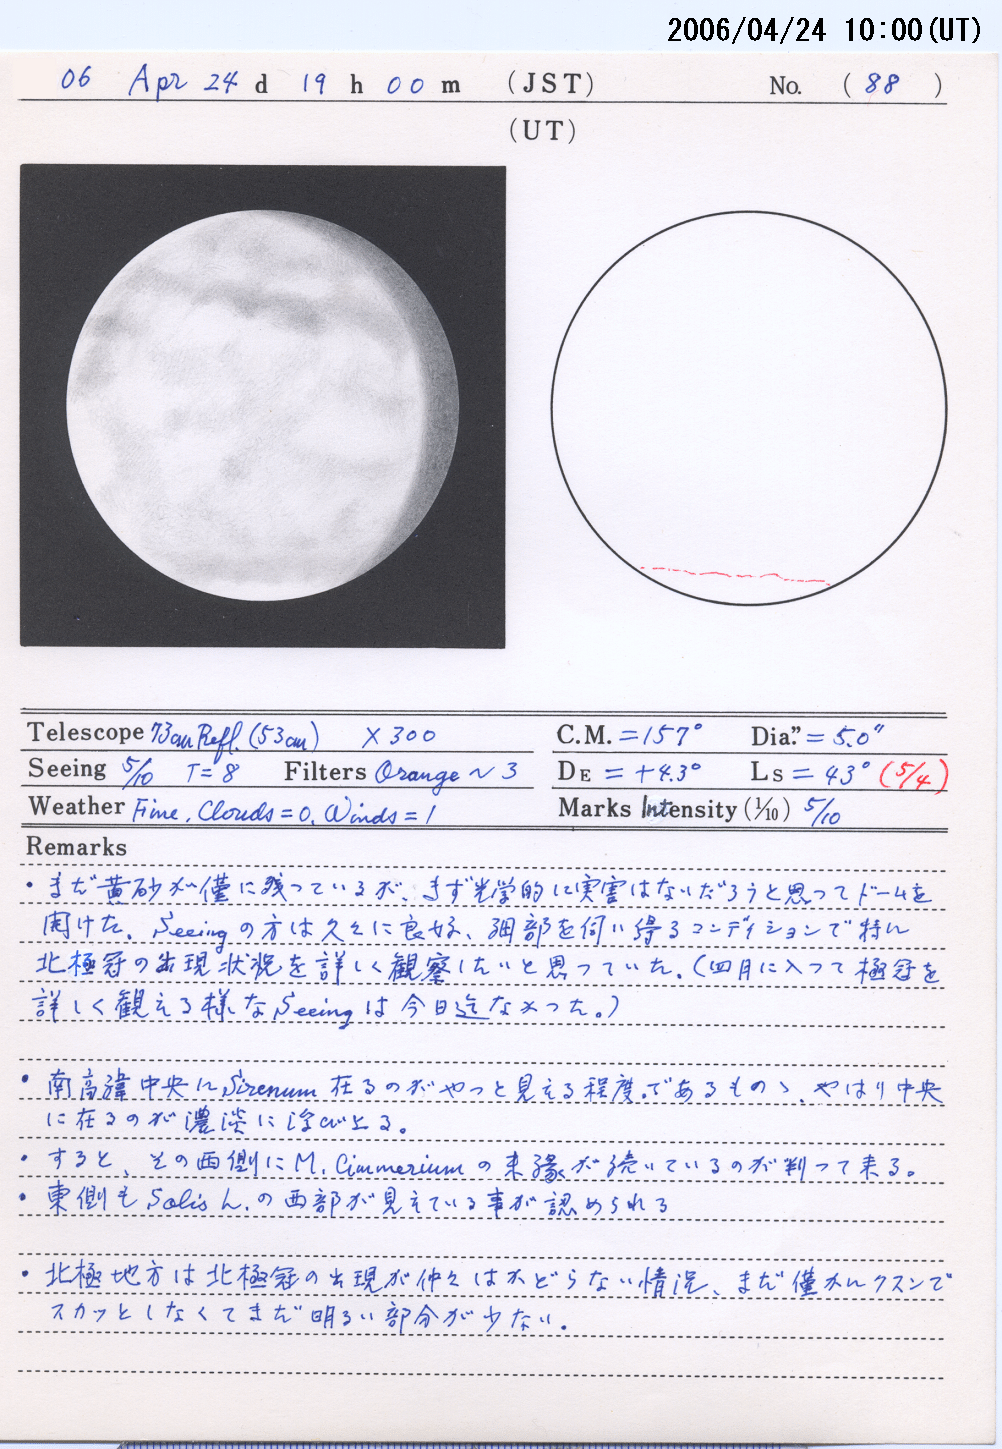 2006/04/24 10:00(UT)
06 Apr 24 d 19 h 00 m (JST) No. (88)
(UT)
Telescope 73cm Refl. (53cm) ×300 C.M. =157° Dia." =5.0"
Seeing 5/10 T=8 Filters Orange~3 DE =+4.3° Ls =43° (5/4)
Weather Fine, Clouds=0, Winds=1 Marks Intensity (1/10) 5/10
Remarks
・まだ黄砂が僅に残っているが、まず光学的に実害はないだろうと思ってドームを
開けた。Seeingの方は久々に良好、細部を伺い得るコンディションで特に
北極冠の出現状況を詳しく観察したいと思っていた。(四月に入って極冠を
詳しく観える様なSeeingは今日迄なかった。)
・南高緯中央にSirenum在るのがやっと見える程度であるものゝ、やはり中央
に在るのが濃淡に浮び上る。
・すると、その西側にM. Cimmeriumの東縁が続いているのが判って来る。
・東側もSolis L.の西部が見えている事が認められる
・北極地方は北極冠の出現が仲々はかどらない情況、まだ僅かにクスンで
スカッとしなくてまだ明るい部分が少ない。